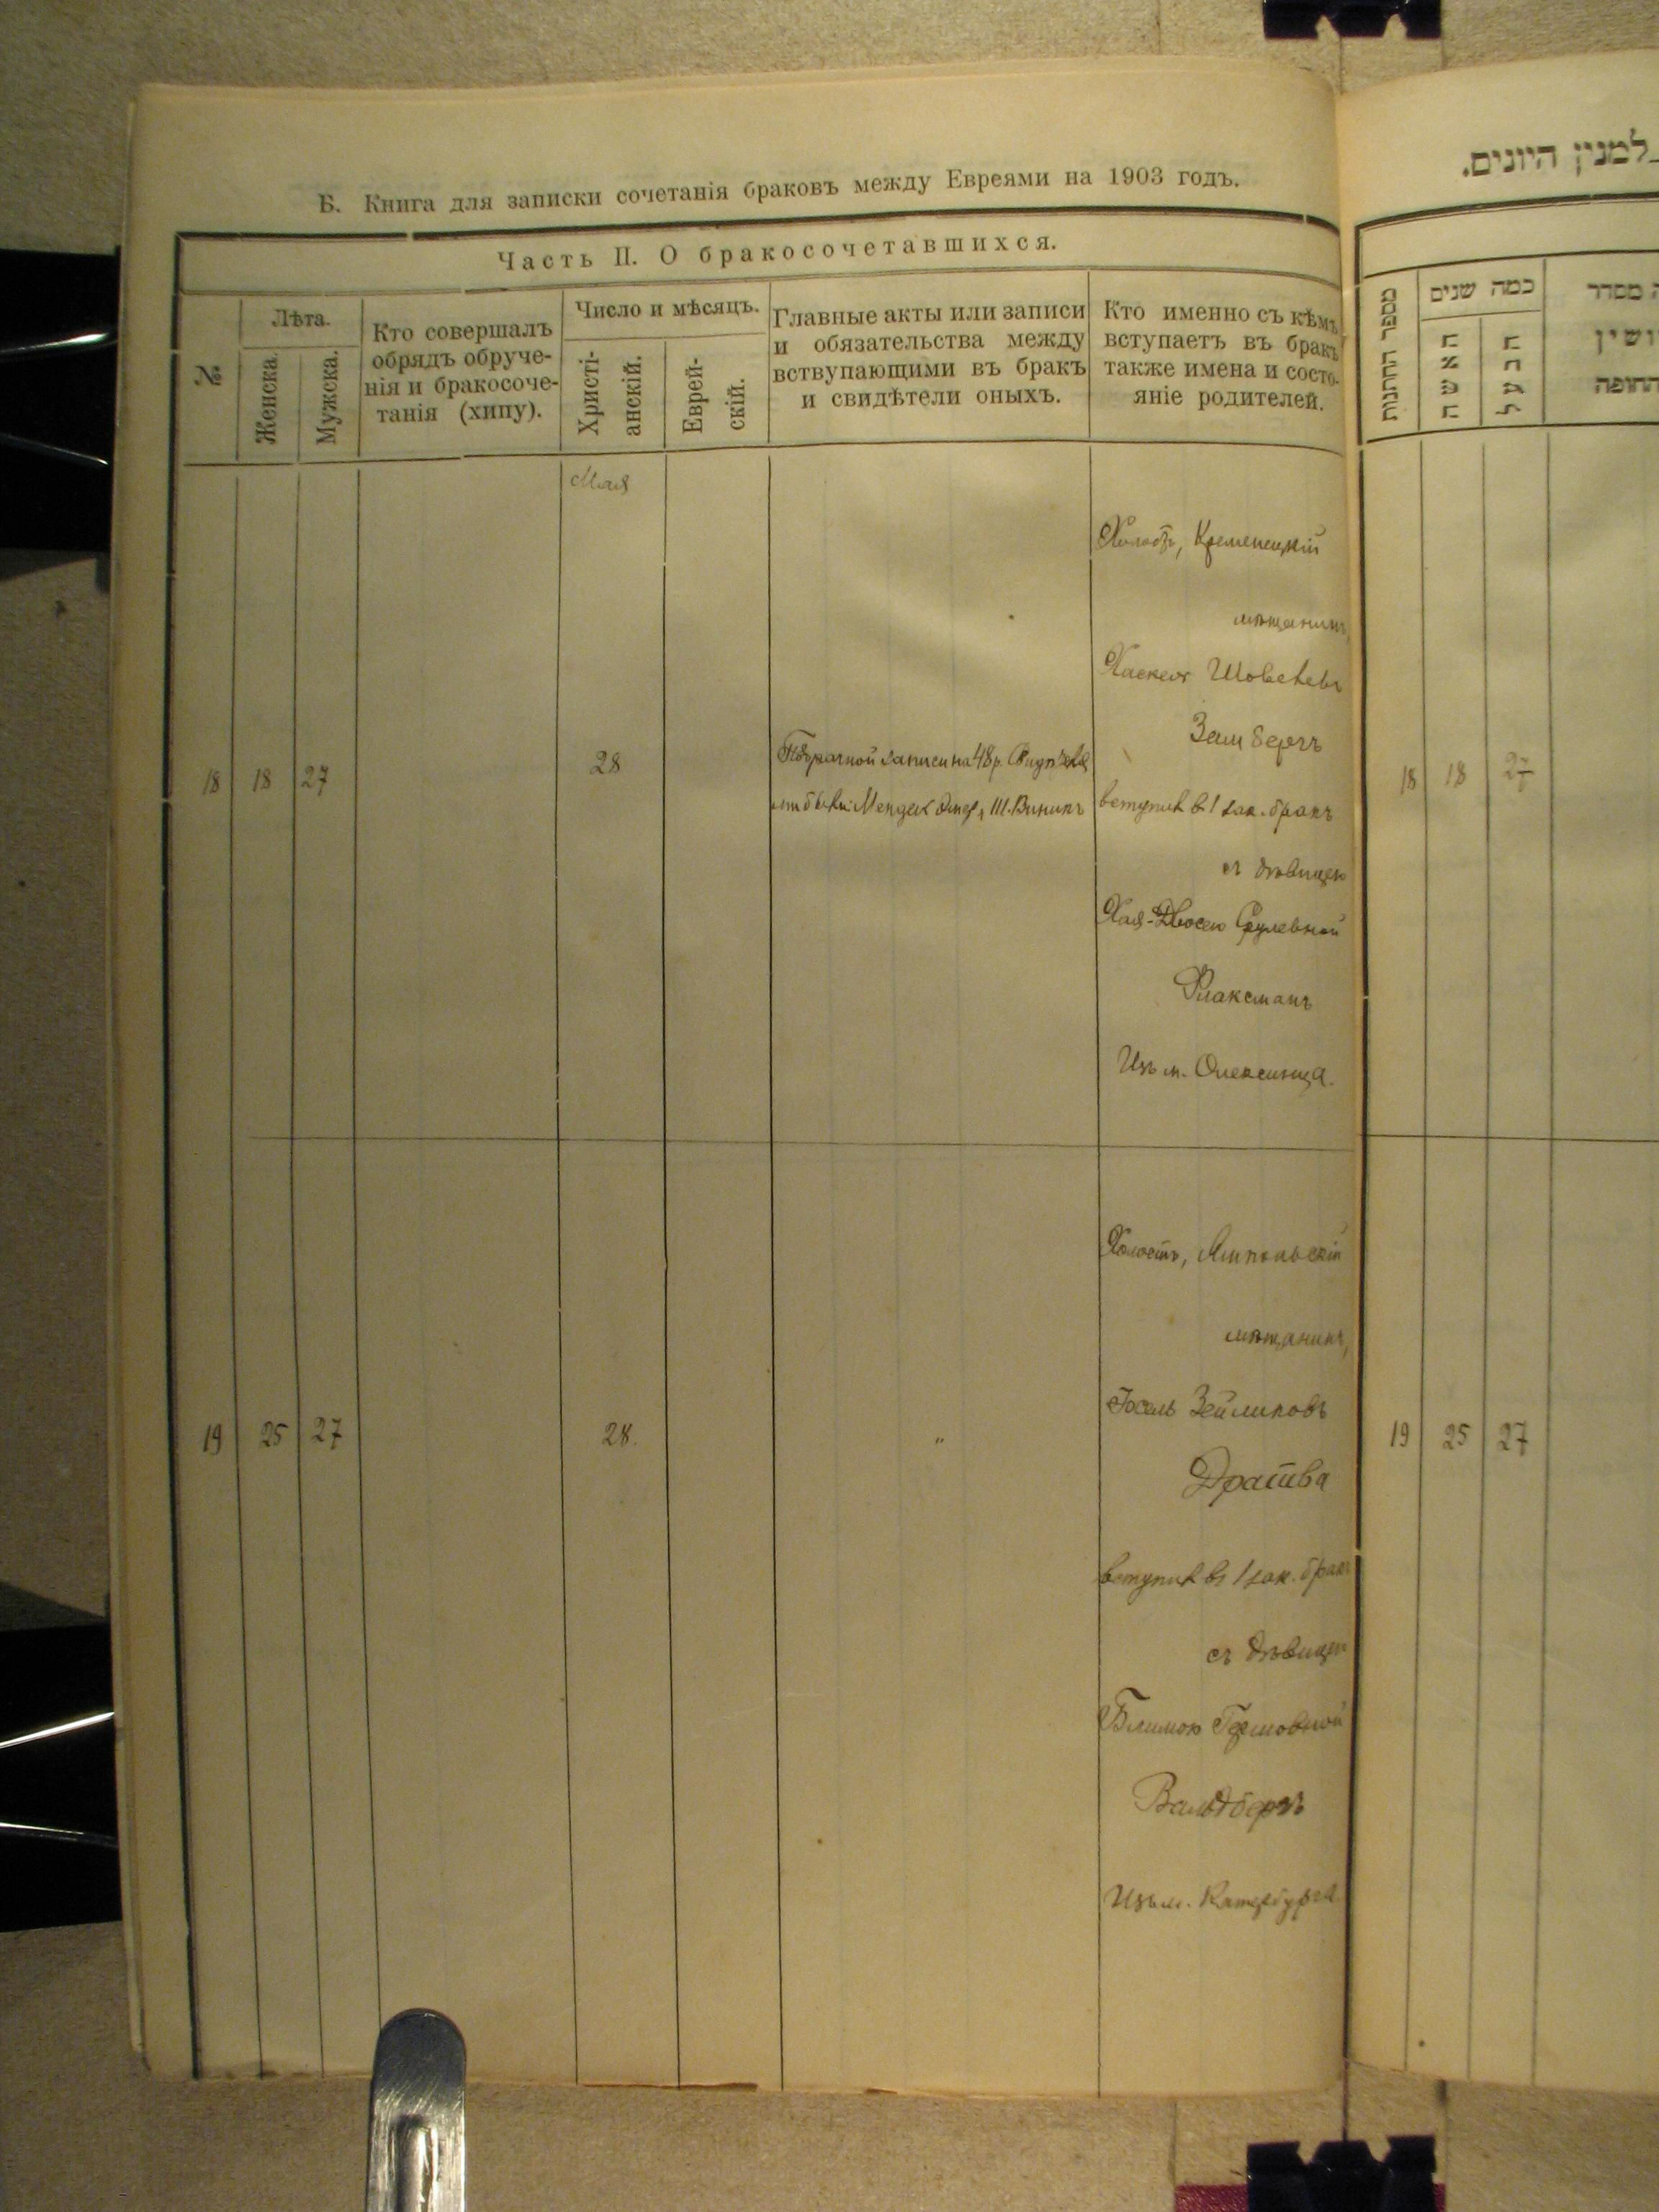 Б. Книга для записки сочетанія браковъ между Евреями на 1903 годъ.
Часть II. О бракосочетавшихся.
№
Лѣта.
Женска.
Мужска.
Кто совершалъ
обрядъ обруче-
нія и бракосоче-
танія (хипу).
Число и мѣсяцъ.
Христі-
анскій.
Еврей-
скій.
Главные акты или записи
и обязательства между
вствупающими въ бракъ
и свидѣтели оныхъ.
Кто именно съ кѣмъ
вступаетъ въ бракъ
также имена и состо-
яніе родителей.
Мая
18 18 27
28
записи на 48 р.
Холостъ, Кременецкій
мѣщанинъ,
Хаскель
Замбергъ
вступилъ въ 1 зак. бракъ
съ дѣвицею
Хая-Двосею Срулевной
Флаксманъ
Изъ м. Олексинца.
19 25 27
28.
"
Холостъ, Ямпольскій
мѣщанинъ,
Іосель Зейликовъ
Дратва
вступилъ въ 1 зак. бракъ
съ дѣвицею
Блимою Гершовной
Вальдбергъ
Изъ м. Катербурга.
למנין היונים.
מספר החתונות
כמה שנים
האשה
הבעל
מסדר
החופה
18 18 27
19 25 27